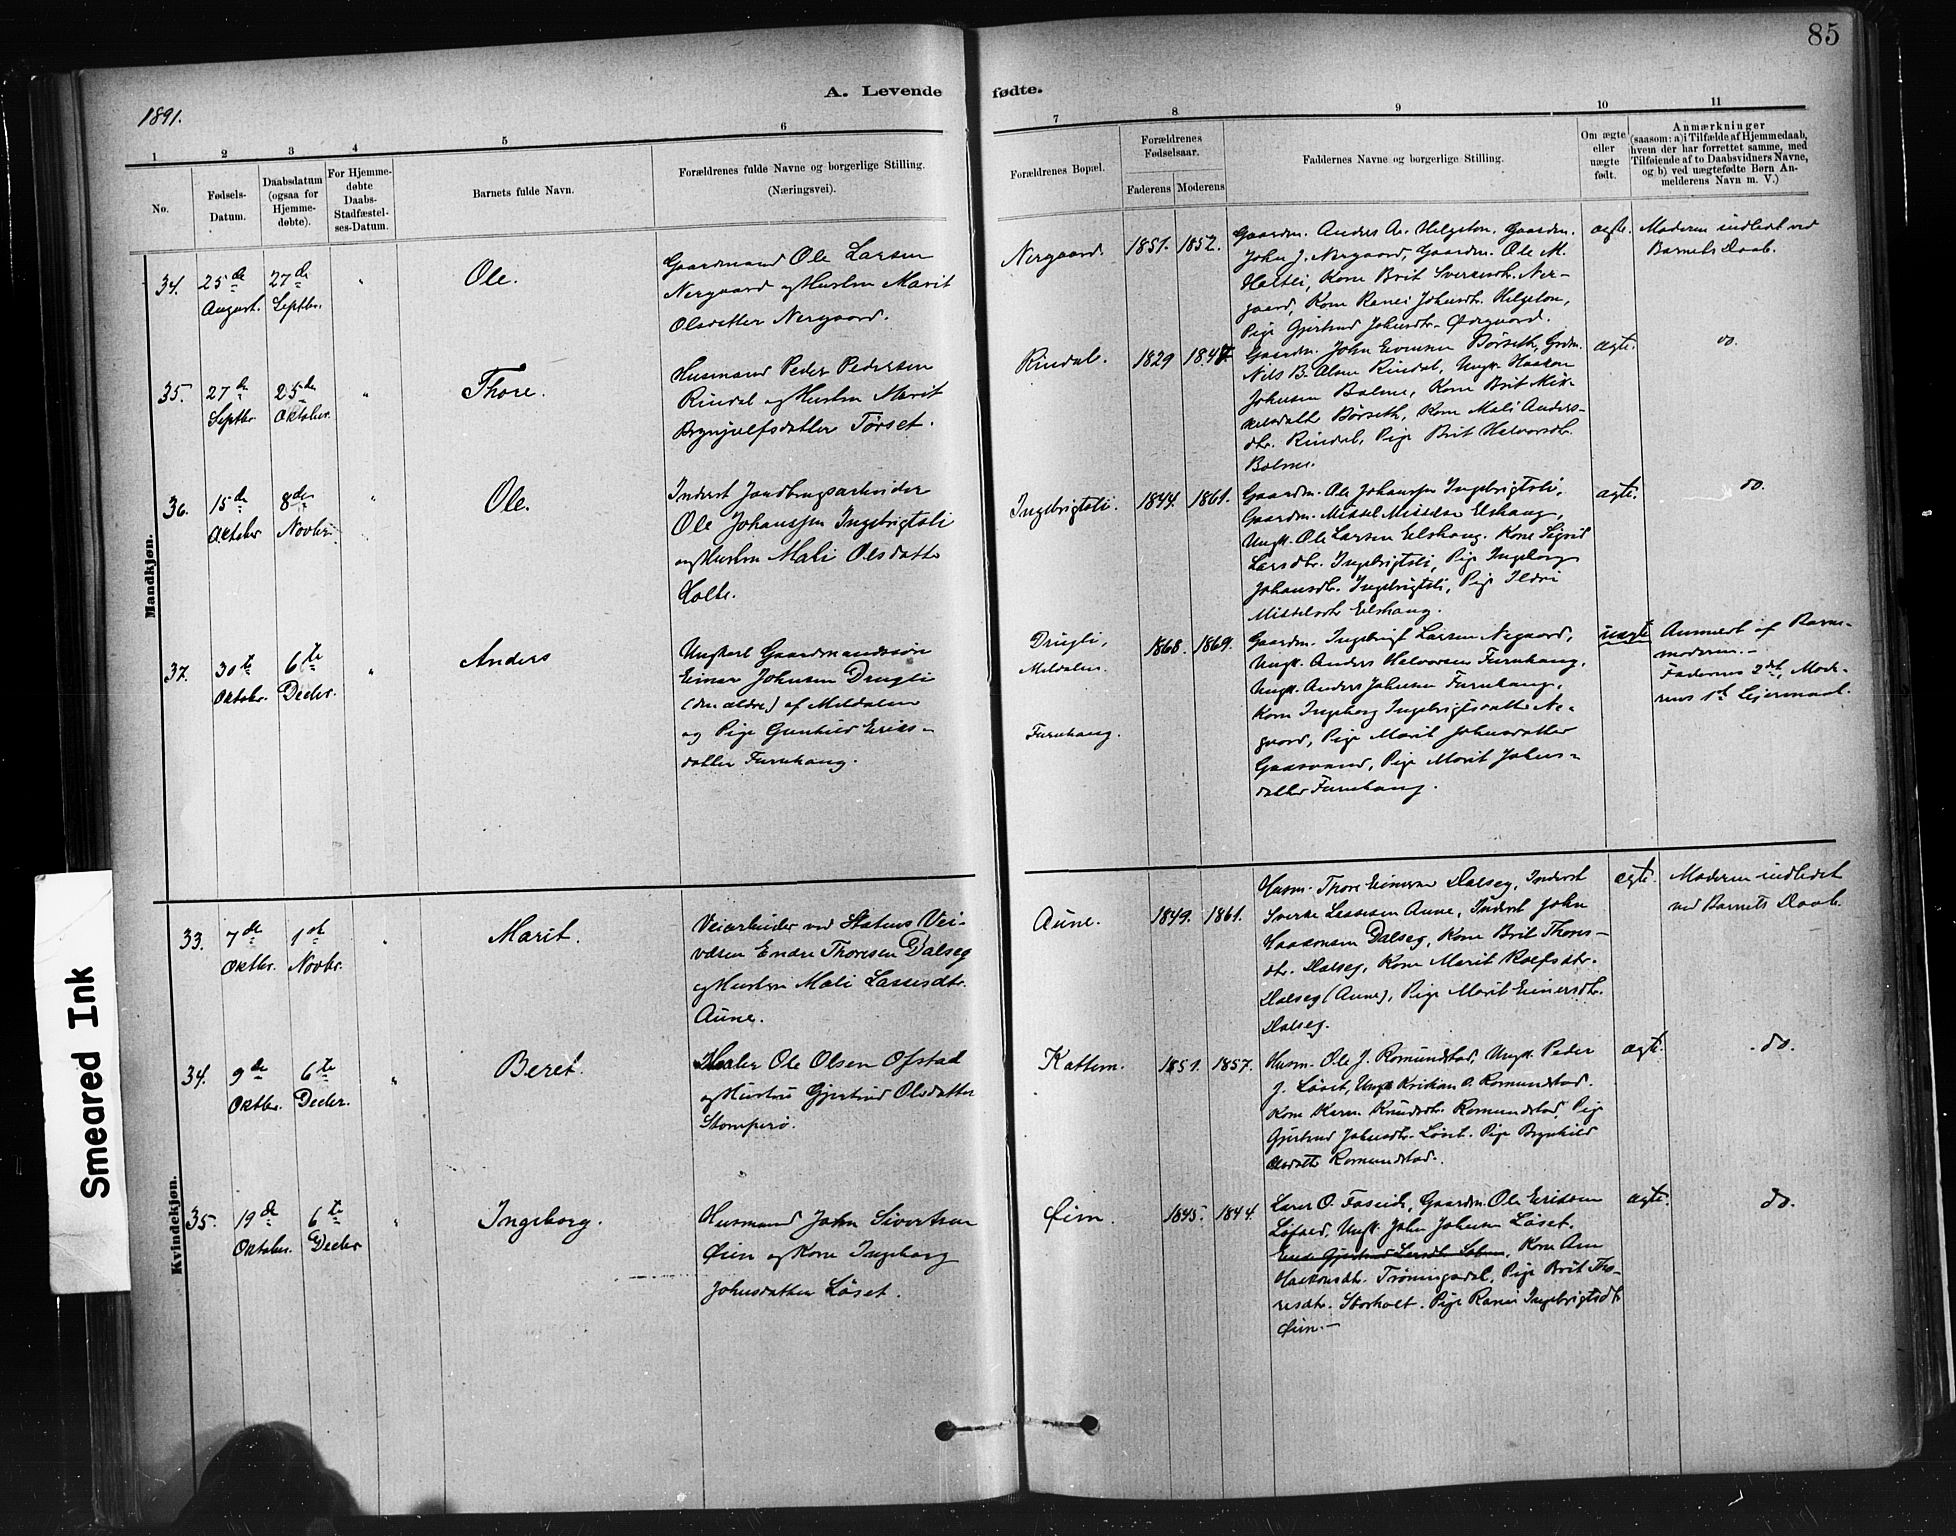 85
A. Levende fødte.
1891.
1 2 3 4 5 6 7 8 9 10 11
No.
Fødsels-
Datum.
Daabsdatum
(ogsaa for
Hjemme-
døbte).
For Hjemme-
døbte
Daabs-
Stadfæstel-
ses-Datum.
Barnets fulde Navn.
Forældrenes fulde Navne og borgerlige Stilling.
(Næringsvei).
Forældrenes Bopæl.
Forældrenes
Fødselsaar.
Faderens Moderens
Faddernes Navne og borgerlige Stilling.
Om ægte
eller
uægte
født.
Anmærkninger
(saasom: a) i Tilfælde af Hjemmedaab,
hvem der har forrettet samme, med
Tilføiende af to Daabsvidners Navne,
og b) ved uægtefødte Børn An-
melderens Navn m. V.)
Mandkjøn.
34. 25de August. 27de Septbr. " Ole.
Gaardmand Ole Larsen
Nergaard og Hustru Marit
Olsdatter Nergaard.
Nergaard. 1851. 1852.
Gaardm. Anders A. Helgeton, Gaardm.
John J. Nergaard, Gaardm. Ole M.
Haltli, Kone Brit Sverkesdtr. Ner-
gaard, Kone Ranei Johnsdtr. Helgeton,
Pige Gjertrud Johnsdtr.
ægte.
Moderen indledet ved
Barnets Daab.
35. 27de Septbr 25de Oktober. " Thore.
Husmand Peder Pedersen
Rindal og Hustru Marit
Brynjulfsdatter Tørset.
Rindal. 1829 1847
Gaardm. John Evensen Børseth, Grdm.
Nils B. Rindal, Ungk. Haakon
Johnsen Bolme, Kone Brit Mik-
kelsdatter Børseth, Kone Mali Anders-
dtr. Rindal, Pige Brit Halvorsdtr.
Bolme.
ægte.
do.
36. 15de Oktober 8de Novbr. " Ole.
Inderst Jordbrugsarbeider
Ole Johanssen Ingebrigtsli
og Hustru Mali Olsdatter
Holte.
Ingebrigtsli. 1844. 1861.
Gaardm. Ole Johanssen Ingebrigtsli,
Gaardm. Mikkel Mikkelsen Elshaug,
Ungk. Ole Larsen Elshaug. Kone Sigrid
Larsdtr. Ingebrigtsli, Pige Ingeborg
Johansdtr. Ingebrigtsli, Pige Ildri
Mikkelsdtr Elshaug.
ægte.
do.
37. 30te Oktobr. 6te Decbr. " Anders
Ungkarl Gaardmandssøn
Einar Johnsen Drugli
(den ældre) af Meldalen
og Pige Gunhild Eriks-
datter Furuhaug.
Drugli,
Meldalen.
Furuhaug.
1868. 1869.
Gaardm. Ingebrigt Larsen Negaard,
Ungk. Anders Halvorsen Furuhaug,
Ungk. Anders Johnsen Furuhaug,
Kone Ingeborg Ingebrigtsdatter Ne-
gaard, Pige Marit Johnsdatter
Gaasvand, Pige Marit Johns-
datter Furuhaug.
uægte
Anmeldt af Barne-
moderen.-
Faderens 2det, Mode-
rens 1ste Leiermaal.
Kvindekjøn.
33. 7de Oktbr. 1st Novbr. " Marit.
Veiarbeider ved Statens Vei-
væsen Endre Thoresen Dalseg
og Hustru Mali Lassesdtr.
Aune.
Aune. 1849. 1861.
Husm. Thore Einersen Dalseg, Inderst
Sverke Lassesen Aune, Inderst John
Haakonsen Dalseg, Kone Brit Thores-
dtr. Dalseg, Kone Marit Rolfsdtr.
Dalseg (Aune), Pige Marit Einersdtr.
Dalseg.
ægte.
Moderen indledet
ved Barnets Daab.
34. 9de Oktbr. 6te Decbr. " Beret.
Maler Ole Olsen Ofstad
og Hustru Gjertrud Olsdatter
Stomperø.
Kattem. 1851. 1857.
Husm. Ole J. Romundstad, Ungk. Peder
J. Løset, Ungk Kristian O. Romundstad.
Kone Karen Knudsdtr. Romundstad, Pige
Gjertrud Johnsdtr. Løset. Pige Brynhild
Olsdatter Romundstad.
ægte.
do.
35. 19de Oktober. 6te Decbr " Ingeborg.
Husmand John Sivertsen
Øien og Kone Ingeborg
Johnsdatter Løset.
Øien. 1845. 1844.
Lærer O. Faseide, Gaardm. Ole Eriksen
Løfald, Ungk. John Johnsen Løset.
Kone Ane
Haakonsdtr. Trøningsdal, Pige Brit Tho-
resdtr. Storholt. Pige Ranei Ingebrigtsdtr
Øien.-
ægte.
do.
Smeared Ink